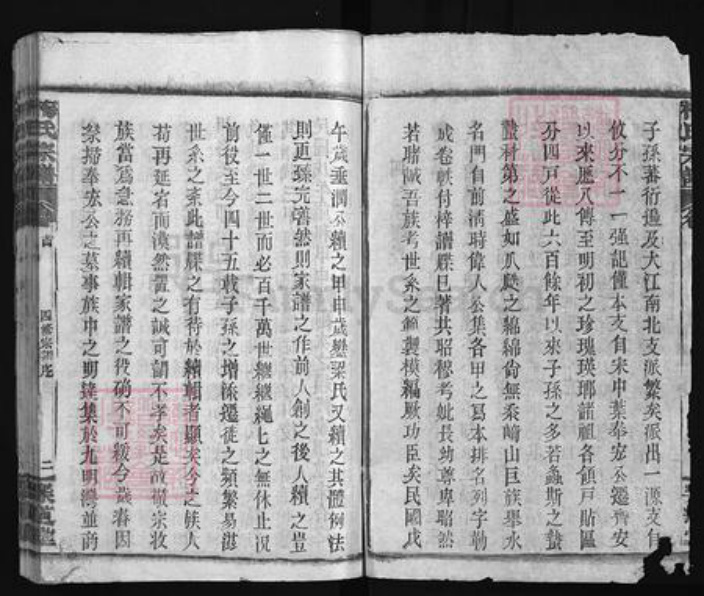 子孫蕃衍遍及大江南北支派繁矣派出一源支自
攸分不一一强記僅本支自宋中葉奉宏公遷齊安
以來歷八傳至明初之珍瑰瑛瑯諸祖各領戸貼區
分四戸從此六百餘年以來子孫之多若螽斯之蟄
蟄科第之盛如瓜瓞之綿綿尙無忝崎山巨族舉水
名門自前淸時偉人公集各甲之寫本排名列字勒
成卷軼付梓譜牒已著其昭穆考妣長幼尊卑昭然
若睹誠吾族考世系之範製模編厥功臣矣民國戊
午歲垂潤公續之甲申歲變梁氏又續之其體例法
則更臻完善然則家譜之作前人創之後人續之豈
僅一世二世而必百千萬世繼繼繩匕之無休止况
前役至今四十五載子孫之增添遷徙之頻繁易滋
世系之紊此譜牒之有待於續輯者顯矣今之族人
苟再延宕而漠然置之誠可謂不孝矣是故敬宗收
族當爲急務再續輯家譜之役确不可緩今歲春因
祭掃奉宏公之墓事族中之明達集於九明灣並商
氏宗譜
卷首
四修宗譜序
二